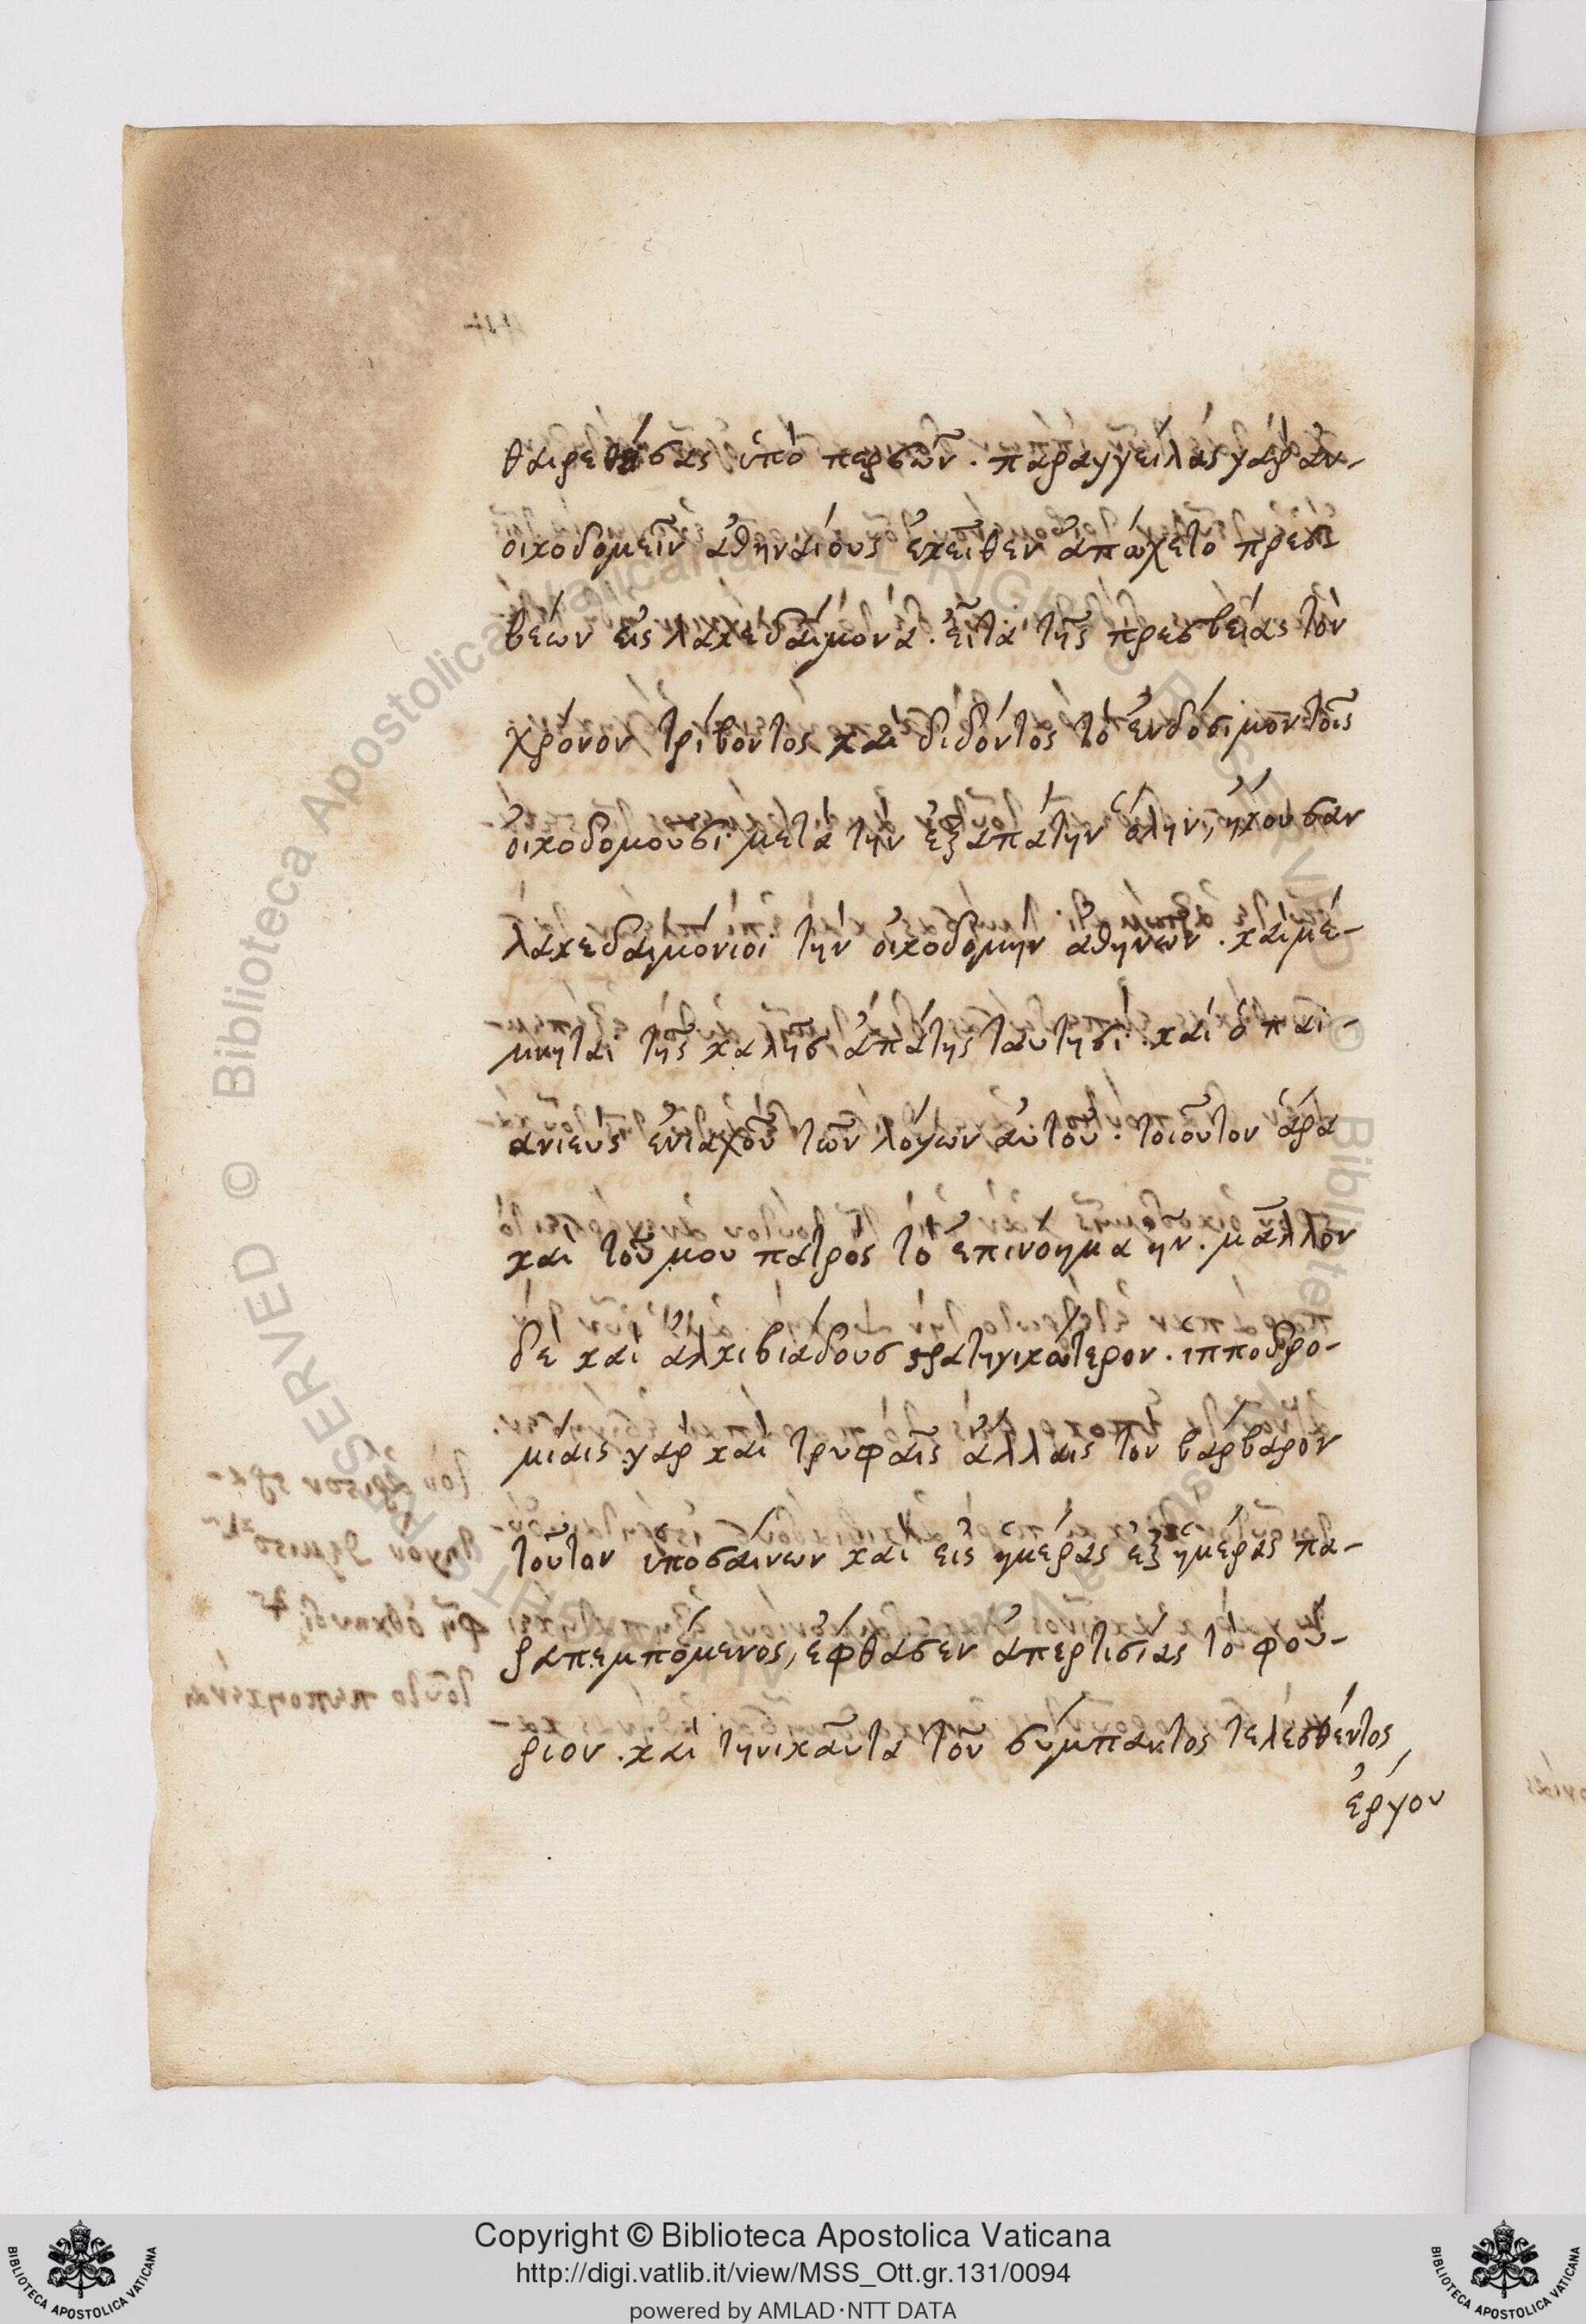 θαιρεθείσας ὑπὸ περσῶν. παραγγείλας γὰρ ἀν-
οικοδομεῖν ἀθηναίους ἐκεῖθεν ἀπώχετο πρεσ
βέων εἰς λακεδαίμονα. εἶτα τῆς πρεσβείας τὸν
χρόνον τρίβοντος καὶ διδόντος τὸ ἐνδόσιμον τοῖς
οἰκοδομοῦσι μετὰ τὴν ἐξαπάτην ὅλην, ἤκουσαν
λακεδαιμόνιοι τὴν οἰκοδομὴν ἀθηνῶν. καὶ μέ-
μνηται τῆς καλῆσ ἀπάτης ταυτησὶ. καὶ ὁ παι-
ανιεὺς ἐνιαχοῦ τῶν λόγων αὐτοῦ. τοιοῦτον ἄρα
καὶ τοῦ μου πατρος τὸ ἐπινοημα ἦν. μᾶλλον
δε καὶ ἀλκιβιάδους στρατηγικώτερον. ιπποδρο-
μιαις γαρ καὶ τρυφαῖς ἄλλαις τον βάρβαρον
τοῦτον ὑποσαίνων καὶ εἰς ἡμέρας ἐξ ἡμέρας πα-
ραπεμπόμενος, ἐφθασεν ἀπερτισίας τὸ φού-
ριον. καὶ τηνικαῦτα τοῦ σύμπαντος τελεσθέντος
ἔργου
Copyright © Biblioteca Apostolica Vaticana
http://digi.vatlib.it/view/MSS_Ott.gr.131/0094
powered by AMLAD·NTT DATA
BIBLIOTECA APOSTOLICA VATICANA
BIBLIOTECA APOSTOLICA VATICANA